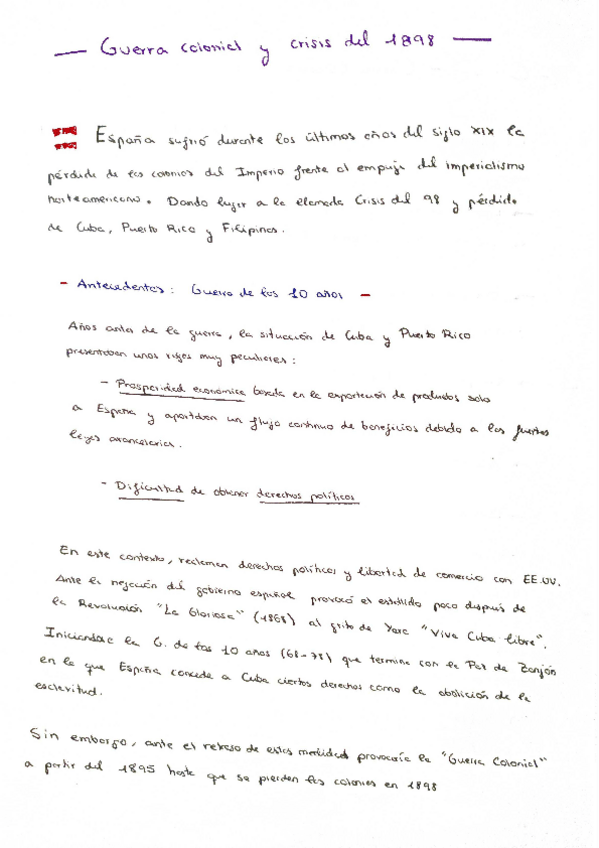 Guerra colonial y crisis del 1898
España sufrió durante los últimos años del siglo XIX la
pérdida de las colonias del Imperio frente al empuje del imperialismo
norteamericano. Dando lugar a la llamada Crisis del 98 y pérdida
de Cuba, Puerto Rico y Filipinas.
- Antecedentes: Guerra de los 10 años -
Años antes de la guerra, la situación de Cuba y Puerto Rico
presentaban unos rasgos muy peculiares:
- Prosperidad económica basada en la exportación de productos solo
a España y aportaban un flujo continuo de beneficios debido a las fuertes
leyes arancelarias.
- Dificultad de obtener derechos políticos
En este contexto, reclaman derechos políticos y libertad de comercio con EE.UU.
Ante la negación del gobierno español provocó el estallido poco después de
la Revolución "La Gloriosa" (1868) al grito de Yara "Viva Cuba libre".
Iniciandose la G. de los 10 años (68-78) que termina con la Paz de Zanjón
en la que España concede a Cuba ciertos derechos como la abolición de la
esclavitud.
Sin embargo, ante el retraso de estas medidas provocaría la "Guerra Colonial"
a partir del 1895 hasta que se pierden las colonias en 1898